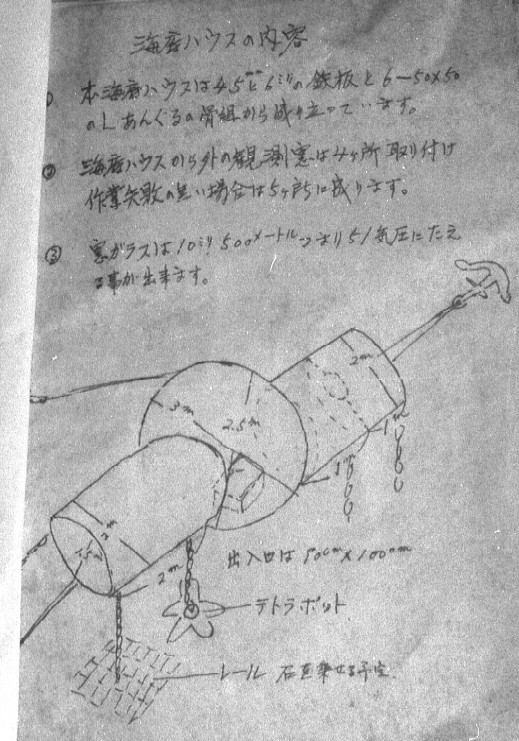 海底ハウスの内容
① 本海底ハウスは4.5㎜と6㍉の鉄板と6-50×50
のLあんぐるの骨組から成り立っています。
② 海底ハウスから外の観測窓は4ヶ所取り付け
作業失敗の無い場合は5ヶ所に成ります。
③ 窓ガラスは10㍉500メートルつまり51気圧にたえ
る事が出来ます。
2m
3m
2.5m
1m
1m
2m
出入口は80cm×100cm
テトラポット
レール 石を乗せる予定